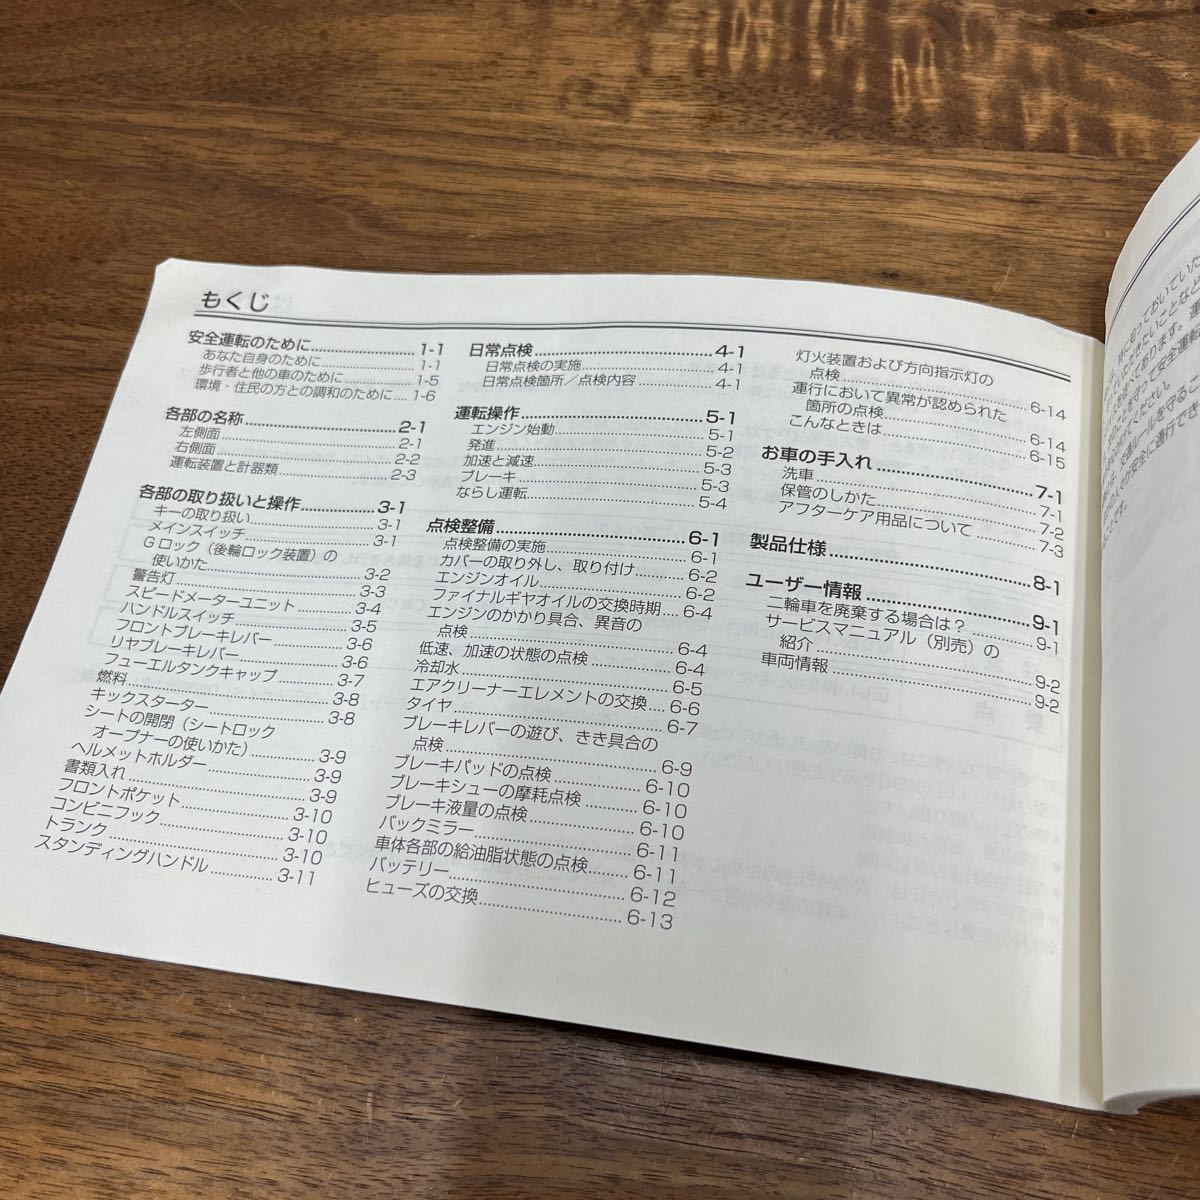 もくじ
安全運転のために 1-1
あなた自身のために 1-1
歩行者と他の車のために 1-5
環境・住民の方との調和のために 1-6
各部の名称 2-1
左側面 2-1
右側面 2-2
運転装置と計器類 2-3
各部の取り扱いと操作 3-1
キーの取り扱い 3-1
メインスイッチ 3-1
Gロック（後輪ロック装置）の
使いかた 3-2
警告灯 3-3
スピードメーターユニット 3-4
ハンドルスイッチ 3-5
フロントブレーキレバー 3-6
リヤブレーキレバー 3-6
フューエルタンクキャップ 3-7
燃料 3-8
キックスターター 3-8
シートの開閉（シートロック
オープナーの使いかた） 3-9
ヘルメットホルダー 3-9
書類入れ 3-9
フロントポケット 3-10
コンビニフック 3-10
トランク 3-10
スタンディングハンドル 3-11
日常点検 4-1
日常点検の実施 4-1
日常点検箇所／点検内容 4-1
運転操作 5-1
エンジン始動 5-1
発進 5-2
加速と減速 5-3
ブレーキ 5-3
ならし運転 5-4
点検整備 6-1
点検整備の実施 6-1
カバーの取り外し、取り付け 6-2
エンジンオイル 6-2
ファイナルギヤオイルの交換時期 6-4
エンジンのかかり具合、異音の
点検 6-4
低速、加速の状態の点検 6-4
冷却水 6-5
エアクリーナーエレメントの交換 6-6
タイヤ 6-7
ブレーキレバーの遊び、きき具合の
点検 6-9
ブレーキパッドの点検 6-10
ブレーキシューの摩耗点検 6-10
ブレーキ液量の点検 6-10
バックミラー 6-11
車体各部の給油脂状態の点検 6-11
バッテリー 6-12
ヒューズの交換 6-13
灯火装置および方向指示灯の
点検 6-14
運行において異常が認められた
箇所の点検 6-14
こんなときは 6-15
お車の手入れ 7-1
洗車 7-1
保管のしかた 7-2
アフターケア用品について 7-3
製品仕様 8-1
ユーザー情報 9-1
二輪車を廃棄する場合は？ 9-1
サービスマニュアル（別売）の
紹介 9-2
車両情報 9-2